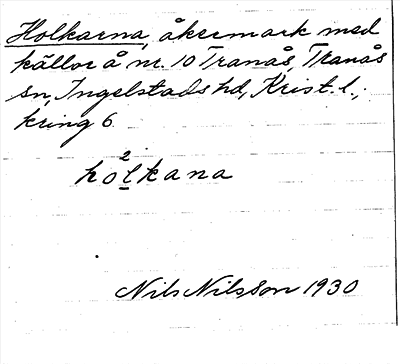 Holkarna, åkermark med
källor å nr. 10 Tranås, Tranås
sn, Ingelstads hd, Krist. l.,
kring 6.
2
holkana
Nils Nilsson 1930